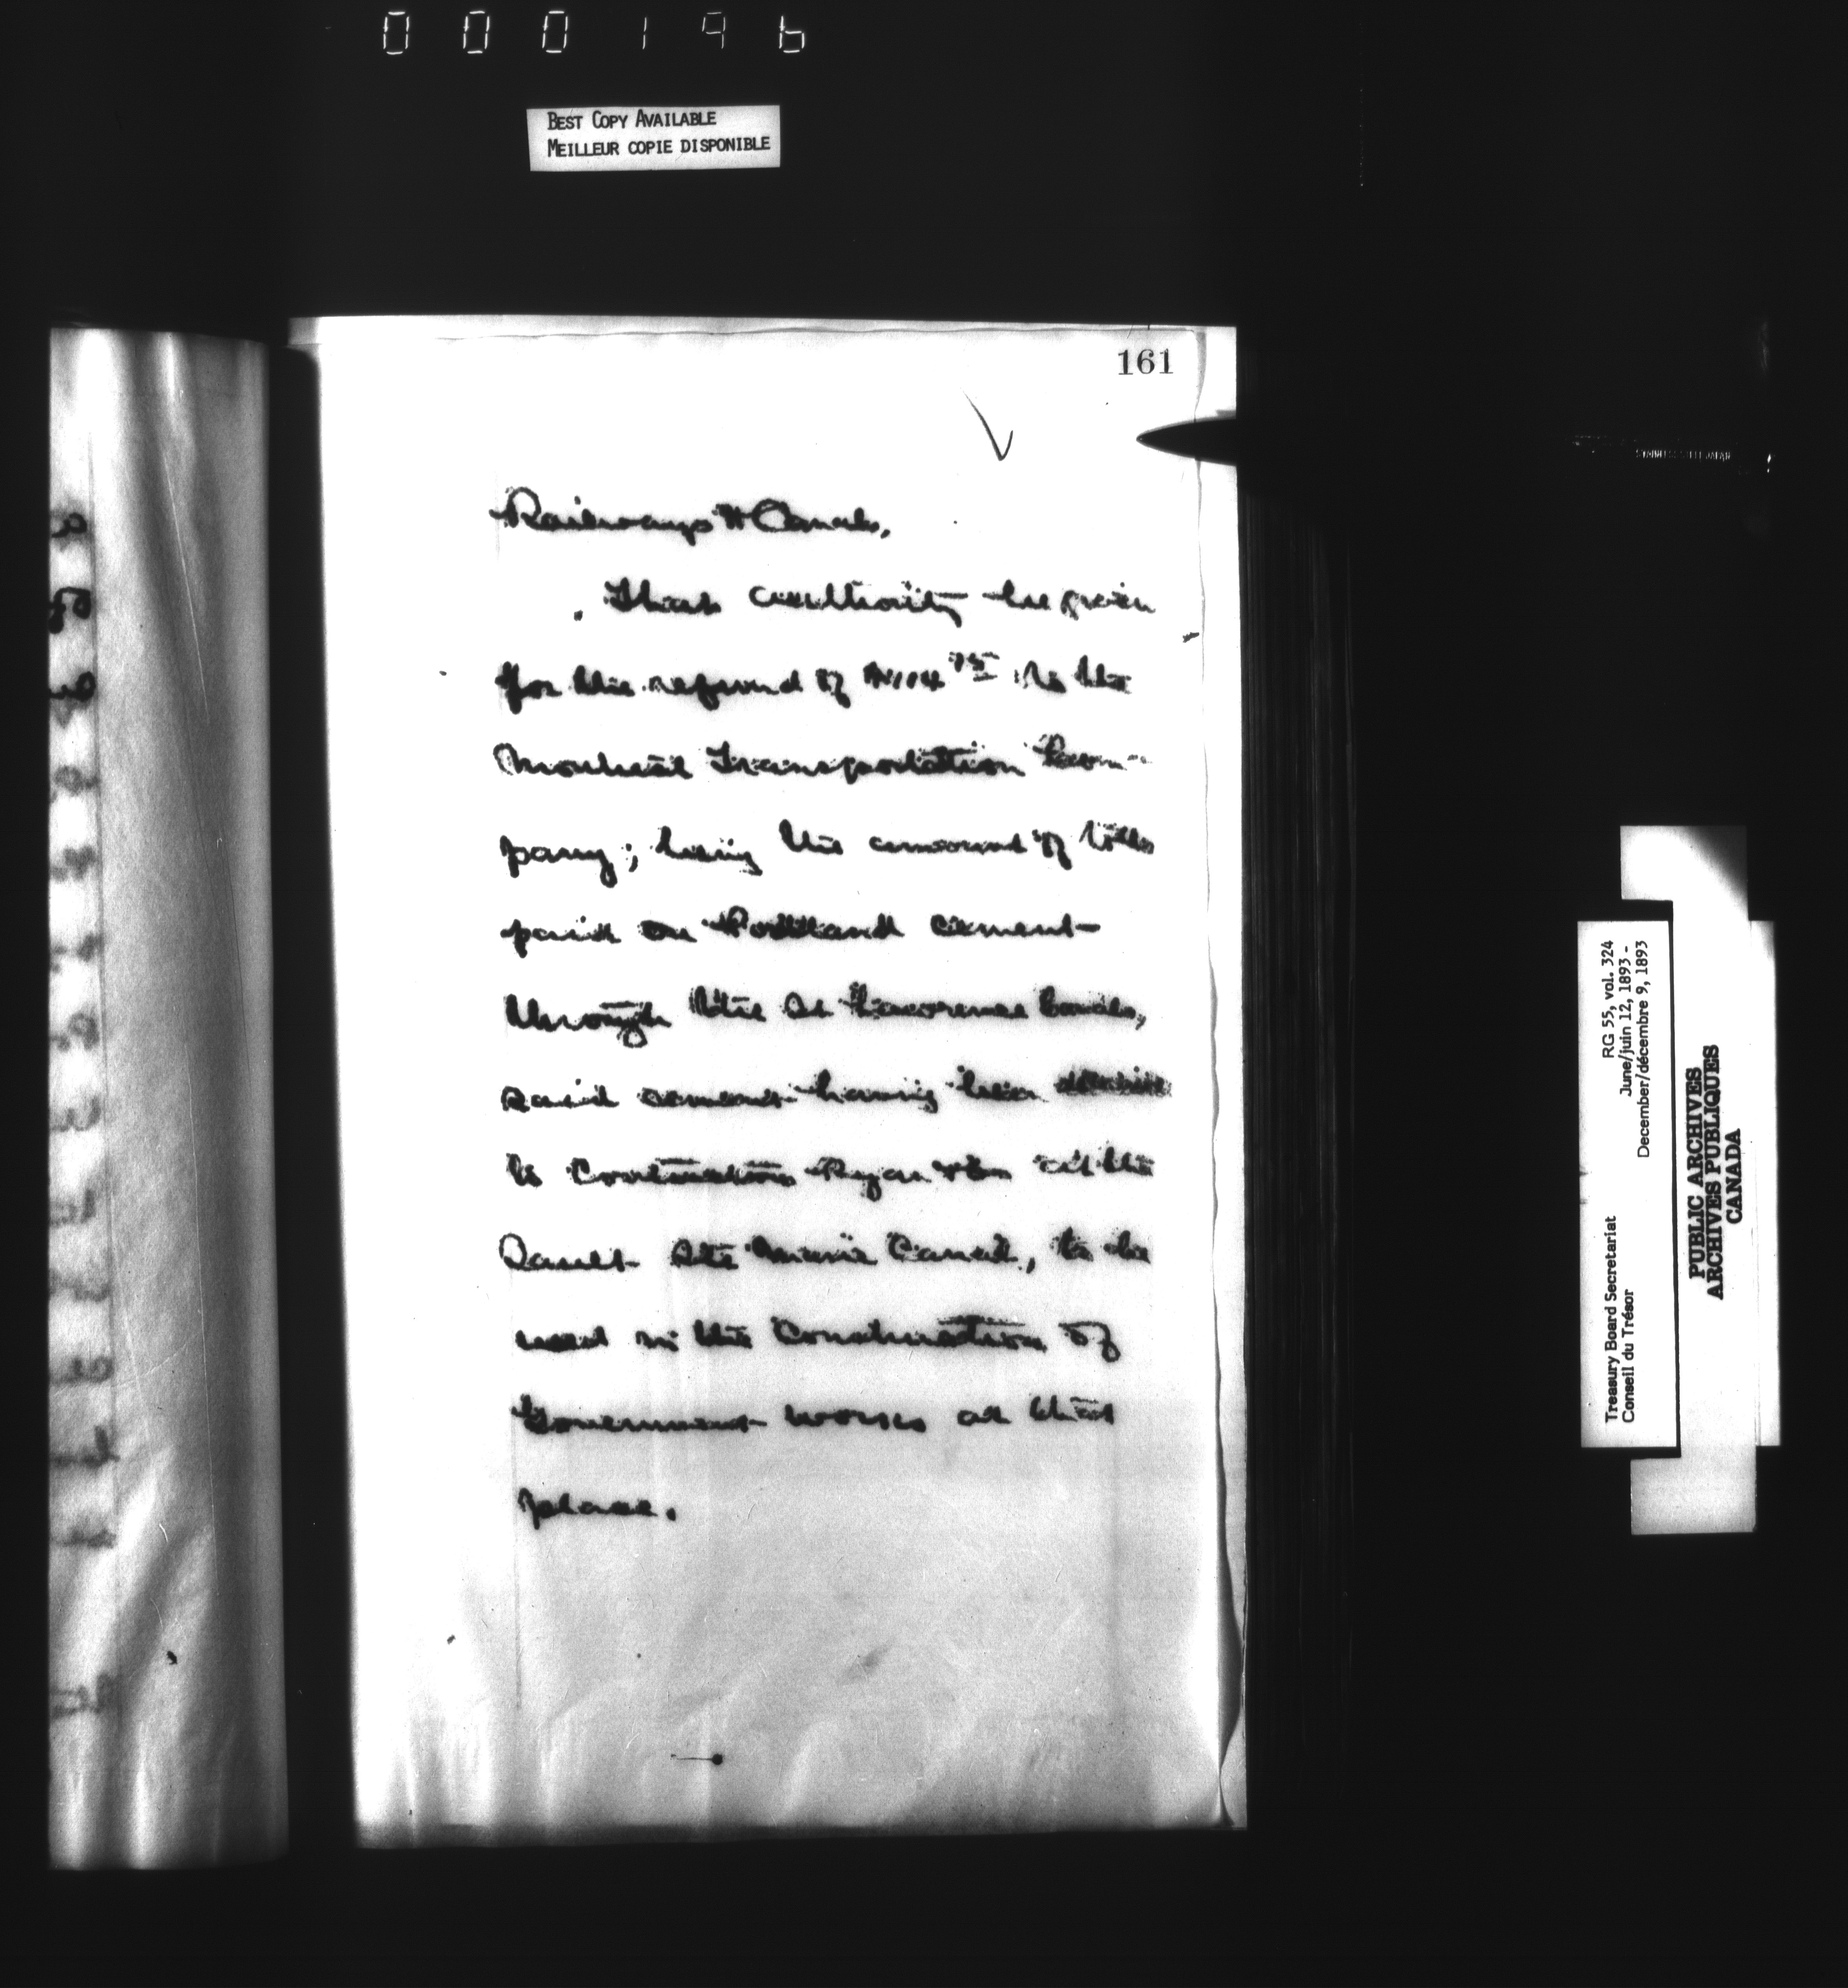 000196
BEST COPY AVAILABLE
MEILLEUR COPIE DISPONIBLE
161
Railways & Canals,
That authority be given
for the refund of $104 75 to the
Montreal Transportation Com-
pany; being the amount of tolls
paid on Portland cement
through the St Lawrence Canals,
said cement having been
to Contractors Ryan & Co at the
Sault Ste Marie Canal, to be
used in the construction of
Government works at that
place.
RG 55, vol. 324
June/juin 12, 1893 -
December/décembre 9, 1893
Treasury Board Secretariat
Conseil du Trésor
PUBLIC ARCHIVES
ARCHIVES PUBLIQUES
CANADA